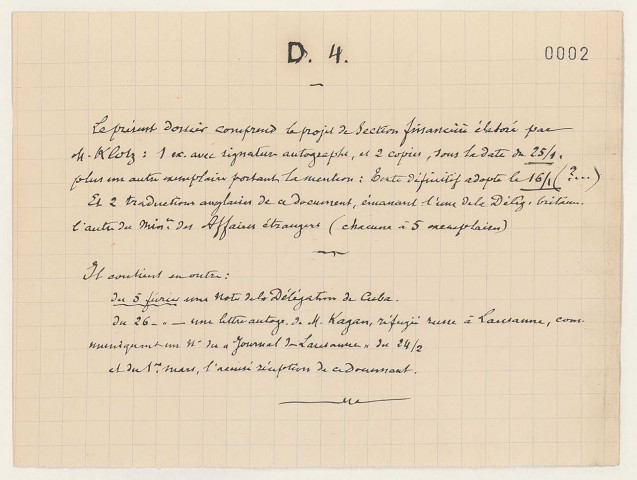 D. 4.
0002
Le présent Dossier comprend le projet de Section financière élaboré par
M. Klotz : 1 ex. avec signature autographe, et 2 copies, sous la date du 25/1,
plus un autre exemplaire portant la mention : Texte définitif adopté le 16/1 (?...)
Et 2 traductions anglaises de ce document, émanant l'une de la Délég. britann.
l'autre du Min. des Affaires étrangères (chacune à 5 exemplaires)
Il contient en outre :
du 5 février une Note de la Délégation de Cuba.
du 26 - " - une lettre autogr. de M. Kagan, réfugié russe à Lausanne, com-
muniquant un N° du "Journal de Lausanne" du 24/2
et du 1er mars, l'accusé réception de ce Document.